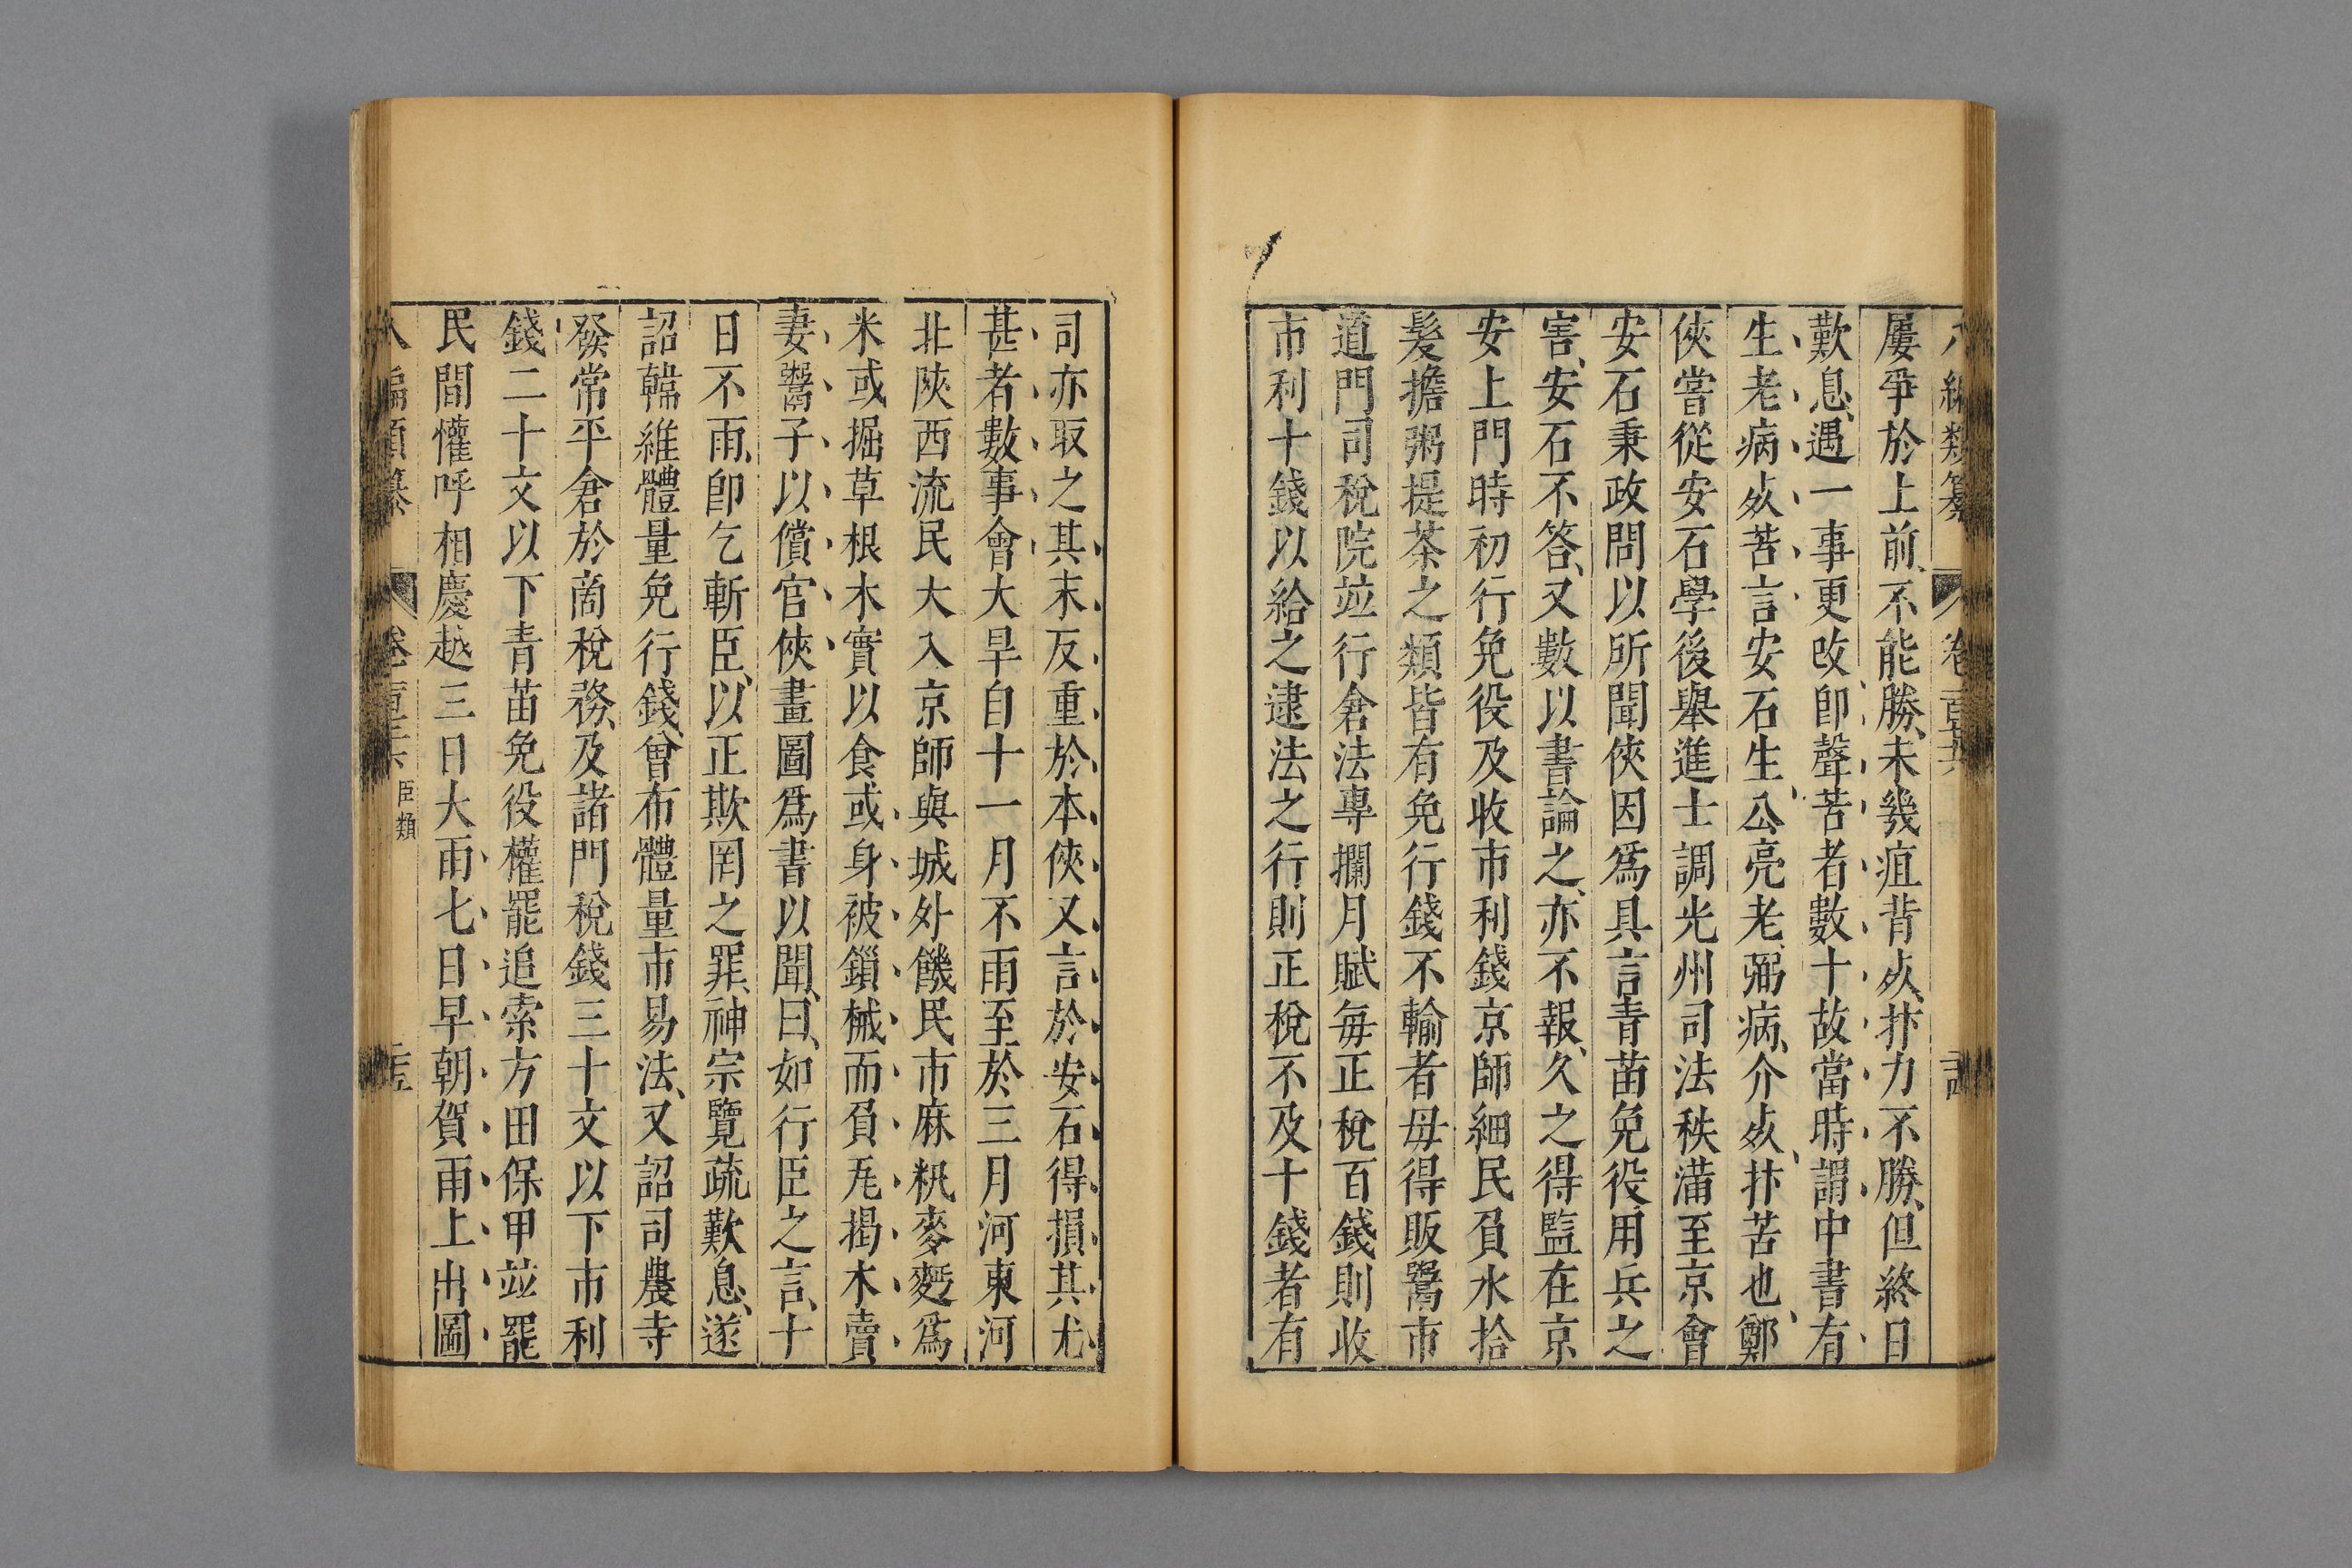 屢爭於上前不能勝未幾疽背歿抃力不勝但終日
歎息遇一事更改卽聲苦者數十故當時謂中書有
生老病歿苦言安石生公亮老弼病介歿抃苦也鄭
俠嘗從安石學後舉進士調光州司法秩滿至京會
安石秉政問以所聞俠因爲具言青苗免役用兵之
害安石不答又數以書論之亦不報久之得監在京
安上門時初行免役及收市利錢京師細民負水拾
髮擔粥提茶之類皆有免行錢不輸者毋得販鬻市
道門司稅院竝行倉法專攔月賦每正稅百錢則收
市利十錢以給之逮法之行則正稅不及十錢者有
司亦取之其末反重於本俠又言於安石得損其尤
甚者數事會大旱自十一月不雨至於三月河東河
北陝西流民大入京師與城外饑民市麻籸麥麪爲
米或掘草根木實以食或身被鎖械而負瓦揭木賣
妻鬻子以償官俠畫圖爲書以聞曰如行臣之言十
日不雨卽乞斬臣以正欺罔之罪神宗覽疏歎息遂
詔韓維體量免行錢曾布體量市易法又詔司農寺
發常平倉於商稅務及諸門稅錢三十文以下市利
錢二十文以下青苗免役權罷追索方田保甲竝罷
民間懽呼相慶越三日大雨七日早朝賀雨上出圖
編類纂 卷 臣類